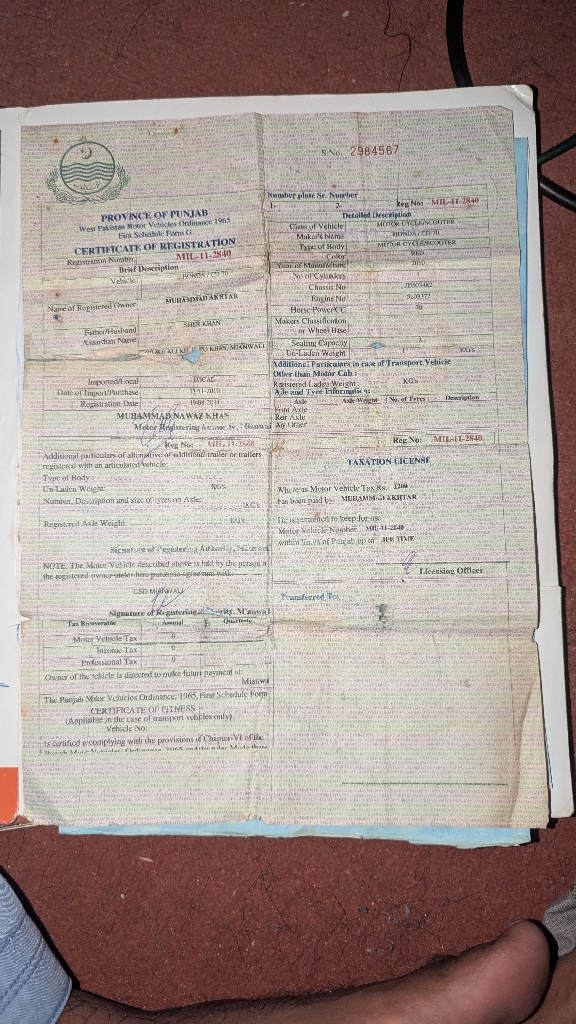 S.No. 2984567
PROVINCE OF PUNJAB
West Pakistan Motor Vehicles Ordinance 1965
First Schedule Form G
CERTIFICATE OF REGISTRATION
Registration Number MIL-11-2840
Brief Description
Vehicle HONDA / CD 70
Name of Registered Owner MUHAMMAD AKHTAR
Father/Husband SHER KHAN
/Guardian Name
KHAN, MIANWALI
Imported/Local LOCAL
Date of Import/Purchase
Registration Date
MUHAMMAD NAWAZ KHAN
Motor Registering
Reg No: MIL-11-2840
Additional particulars of alternative of additional trailer or trailers
registered with an articulated vehicle:
Type of Body :
Un-Laden Weight: KG's
Number, Description and size of tyres on Axle:
KG's
Registered Axle Weight: KG's
Signature of Registering Authority,
NOTE: The Motor Vehicle described above is held by the person a
the registered owner under hire purchase agreement with:
GSD MIANWALI
Signature of Registering
Tax Recoverable Annual Quarterly
Motor Vehicle Tax 0
Income Tax 0
Professional Tax 0
Owner of the vehicle is directed to make future payment at:
Mianwa
The Punjab Motor Vehicles Ordinance, 1965, First Schedule Form
CERTIFICATE OF FITNESS
(Appliable in the case of transport vehicles only)
Vehicle No:
is certified a complying with the provisions of Chapter-VI of the
Number plate Sr. Number
1. 2. Reg No: MIL-11-2840
Detailed Description
Class of Vehicle MOTOR CYCLE/SCOOTER
Maker's Name HONDA / CD 70
Type of Body MOTOR CYCLE/SCOOTER
Color RED
Year of Manufacture 2010
No of Cylinders 1
Chassis No
Engine No
Horse Power/CC 70
Makers Classification
or Wheel Base
Seating Capacity 2
Un-Laden Weight KG's
Additional Particulars in case of Transport Vehicle
Other than Motor Cab :
Registered Laden Weight KG's
Axle and Tyre Information:
Axle Axle Weight No. of Tyres Description
Front Axle
Rear Axle
Any Other
Reg No: MIL-11-2840
TAXATION LICENSE
Whereas Motor Vehicle Tax Rs. 1200
has been paid by: MUHAMMAD AKHTAR
He is permitted to keep for use
Motor Vehicle Number MIL-11-2840
within limits of Punjab up to LIFE TIME
Licensing Officer
Transferred To: